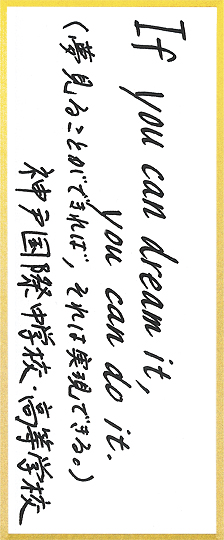 If you can dream it,
you can do it.
(夢見ることができれば、それは実現できる。)
神戸国際中学校・高等学校